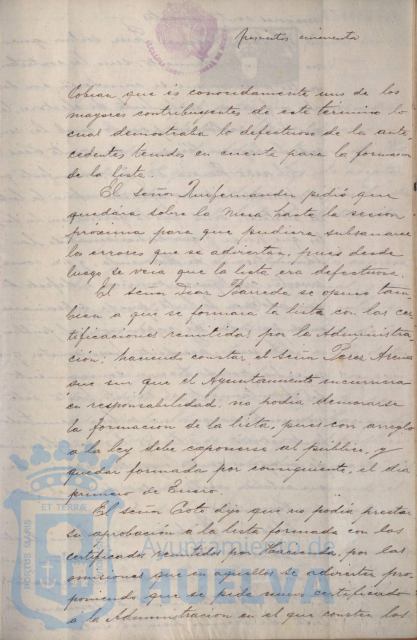 Cobian que es conocidamente uno de los
mayores contribuyentes de este término lo
cual demostraba lo defectuoso de los ante
cedentes tenidos en cuenta para la formacion
de la lista.
El señor Quifernandez pidió que
quedara sobre la mesa hasta la sesion
próxima para que pudiera subsanarse
los errores que se advierten, pues desde
luego se veia que la lista era defectuosa.
El señor Diaz Barreda se opuso tam
bien a que se formara la lista con las cer
tificaciones remitidas por la Administra
ción; haciendo constar el señor Perez Arenas
que sin que el Ayuntamiento incurriera
en responsabilidad, no podia demorarse
la formacion de la lista, pues con arreglo
a la ley debe esponerse al público, y
quedar formada por consiguiente, el dia
primero de Enero.
El señor Coto dijo que no podia prestar
su aprobación a la lista formada con los
certificados remitidos por Hacienda, por las
omisiones que en aquellos se advierten pro
poniendo que se pida nuevo certificado
a la Administracion en el que consten los
ET TERRA
PORTUS MARIS
Ayuntamiento de
HUELVA